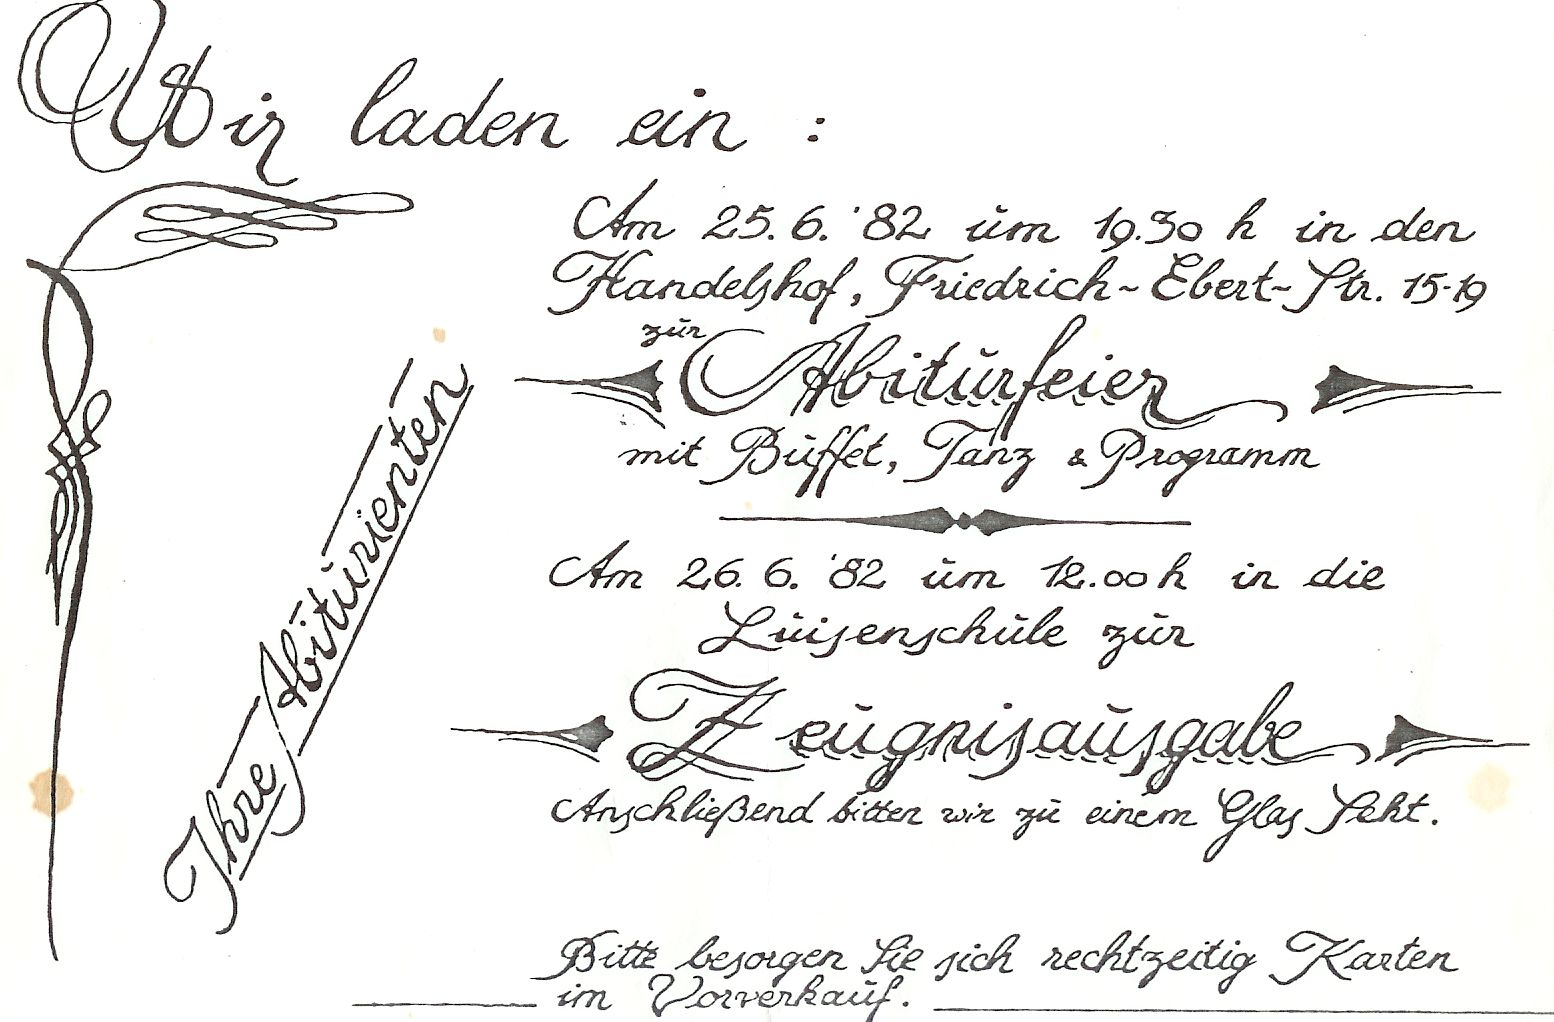 Wir laden ein :
Am 25.6.'82 um 19.30 h in den
Handelshof, Friedrich-Ebert-Str. 15-19
zur
Abiturfeier
mit Buffet, Tanz & Programm
Am 26.6.'82 um 12.00 h in die
Luisenschule zur
Zeugnisausgabe
Anschließend bitten wir zu einem Glas Sekt.
Ihre Abiturienten
Bitte besorgen Sie sich rechtzeitig Karten
im Vorverkauf.